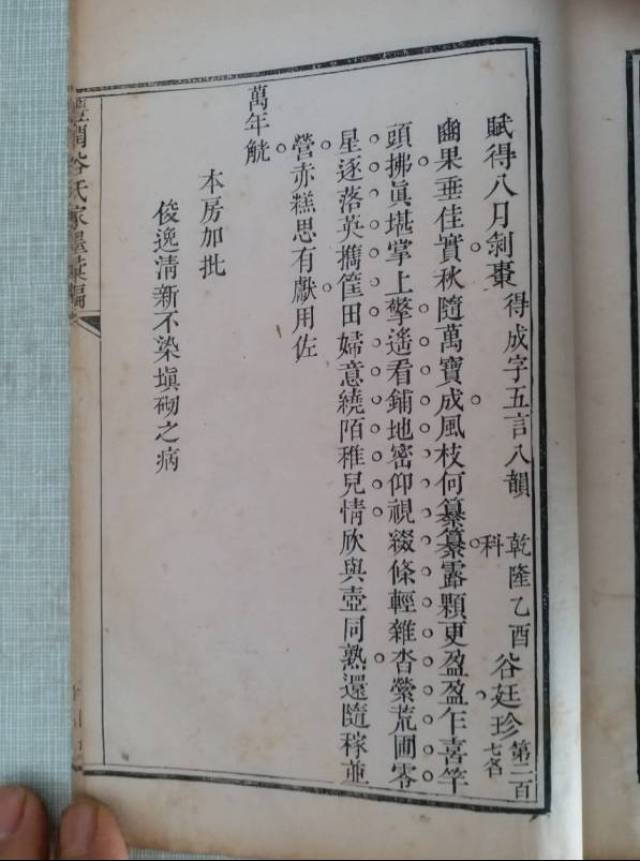 賦得八月剝棗 得成字五言八韻 乾隆乙酉科 谷廷珍 第二百七名
豳果垂佳實秋隨萬寶成風枝何纂纂露顆更盈盈乍喜竿
頭拂眞堪掌上擎遙看鋪地密仰視綴條輕雜沓縈荒圃零
星逐落英攜筐田婦意繞陌稚兒情欣與壺同熟還隨稼並
營赤糕思有獻用佐
萬年觥
本房加批
俊逸清新不染塡砌之病
谷氏家墨彙編